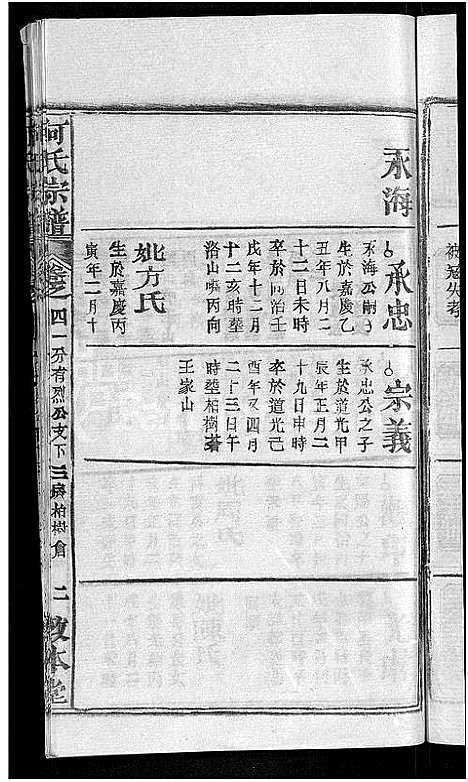 永海
承忠
永海公嗣子
生於嘉慶乙
丑年八月二
十二日未時
卒於同治壬
戌年十二月
十二亥時塟
洛山嘴丙向
妣方氏
生於嘉慶丙
寅年二月十
宗義
承忠公之子
生於道光甲
辰年正月二
十九日申時
卒於道光己
酉年又四月
二十三日午
時塟柏樹
王家山
何氏宗譜
卷之四一
分有烈公支下三房柏樹倉
二
敦本堂